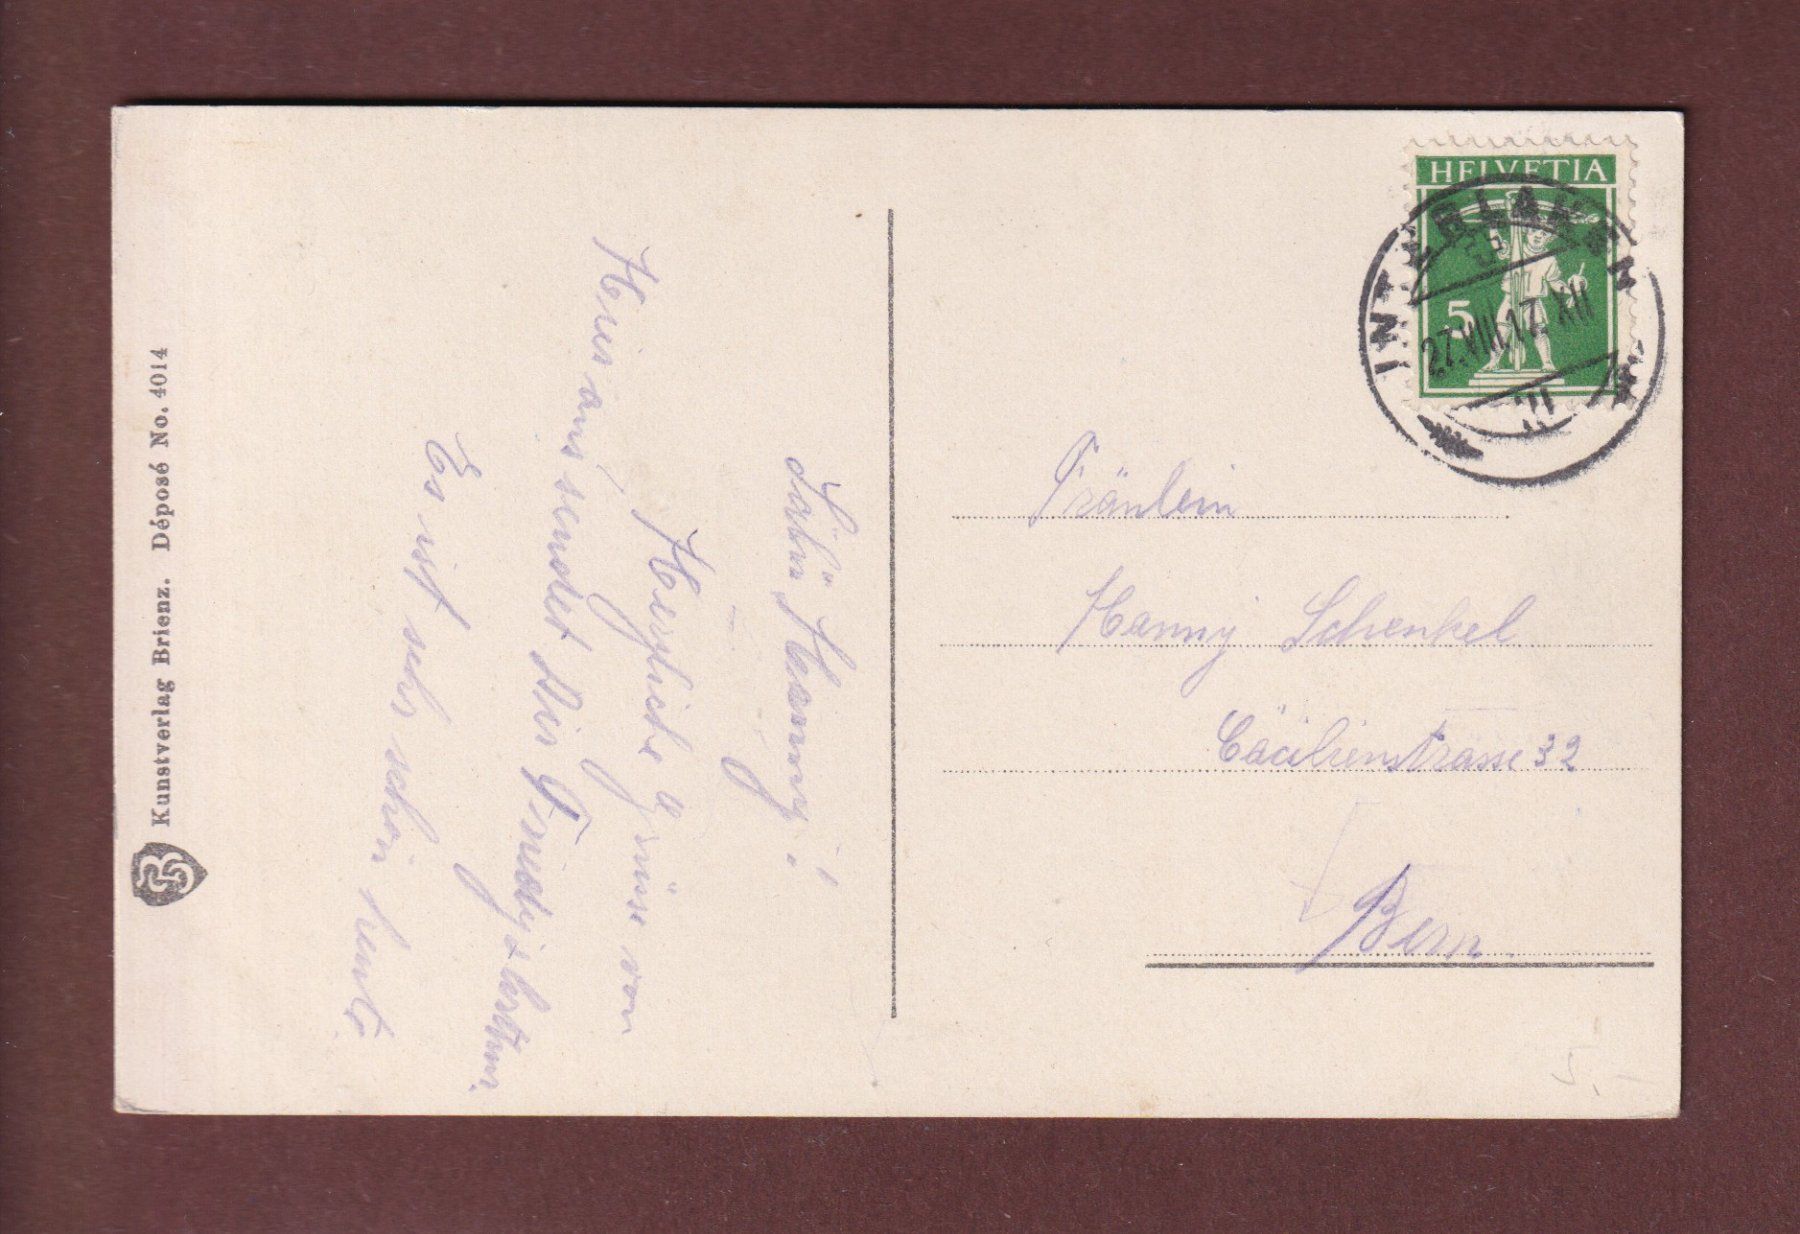 Kunstverlag Brienz. Déposé No. 4014
HELVETIA
5
INTERLAKEN
27.VIII.17. XII
Fräulein
Hanny Schenkel
Cäcilienstrasse 32
Bern
Hanny!
Herzliche Grüsse von
hier aus sendet Dir
Es ist sehr schön heute
5.–